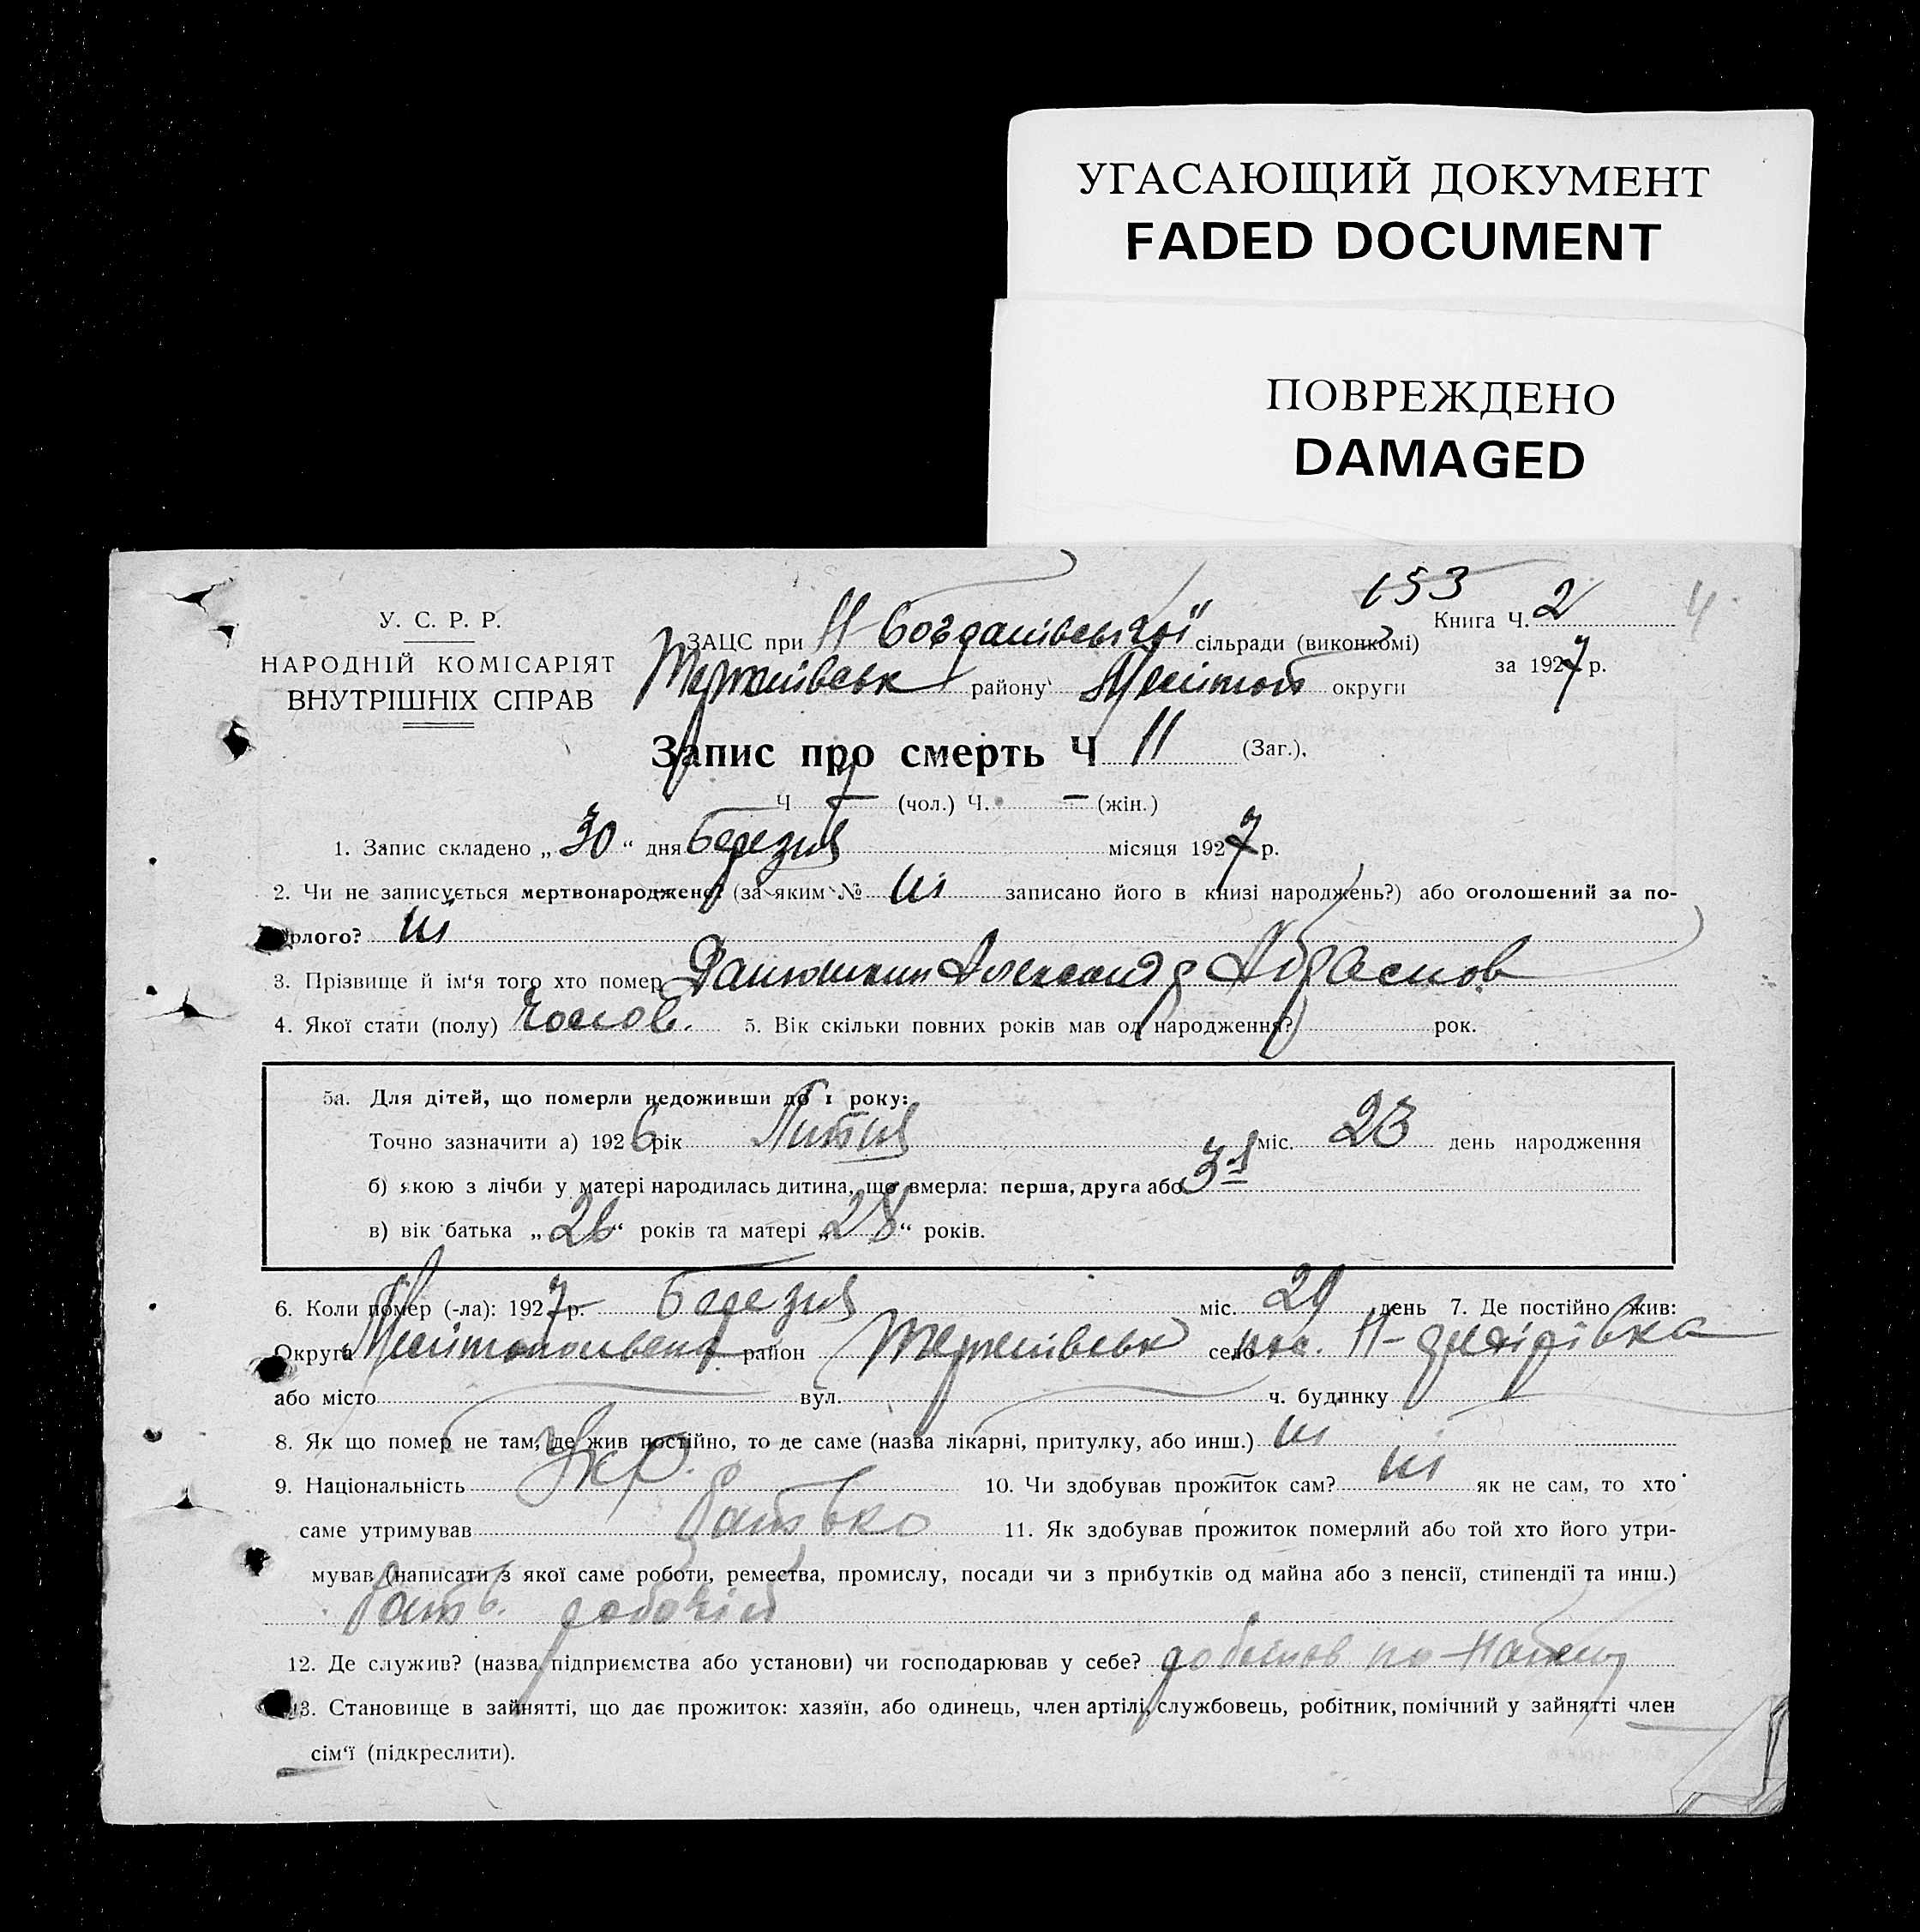 УГАСАЮЩИЙ ДОКУМЕНТ
FADED DOCUMENT
ПОВРЕЖДЕНО
DAMAGED
153
У. С. Р. Р.
НАРОДНІЙ КОМІСАРІЯТ
ВНУТРІШНІХ СПРАВ
Книга Ч. 2 4
за 1927 р.
ЗАЦС при Н-Богданівської сільради (виконкомі)
району Мелітоп округи
Запис про смерть Ч 11 (Заг.),
Ч 7 (чол.) Ч. – (жін.)
1. Запис складено „30“ дня Березня місяця 1927 р.
2. Чи не записується мертвонароджене? (за яким № ні записано його в книзі народжень?) або оголошений за по-
рлого? ні
3. Прізвище й ім‘я того хто помер Данюшкин Александр
4. Якої стати (полу) чолов. 5. Вік скільки повних років мав од народження? рок.
5а. Для дітей, що померли недоживши до 1 року:
Точно зазначити а) 1926 рік Лютня міс. 23 день народження
б) якою з лічби у матері народилась дитина, що вмерла: перша, друга або 3я
в) вік батька „26“ років та матері „28“ років.
6. Коли помер (-ла): 1927 р. Березня міс. 29 день 7. Де постійно жив:
Округа Мелітопольська район село пос. Н-
або місто вул. ч. будинку
8. Як що помер не там, де жив постійно, то де саме (назва лікарні, притулку, або инш.) ні
9. Національність Укр. 10. Чи здобував прожиток сам? ні як не сам, то хто
саме утримував батько 11. Як здобував прожиток померлий або той хто його утри-
мував (написати з якої саме роботи, ремества, промислу, посади чи з прибутків од майна або з пенсії, стипендії та инш.)
батьк. робочій
12. Де служив? (назва підприємства або установи) чи господарював у себе? по найму
13. Становище в зайнятті, що дає прожиток: хазяїн, або одинець, член артілі, службовець, робітник, помічний у зайнятті член
сім‘ї (підкреслити).